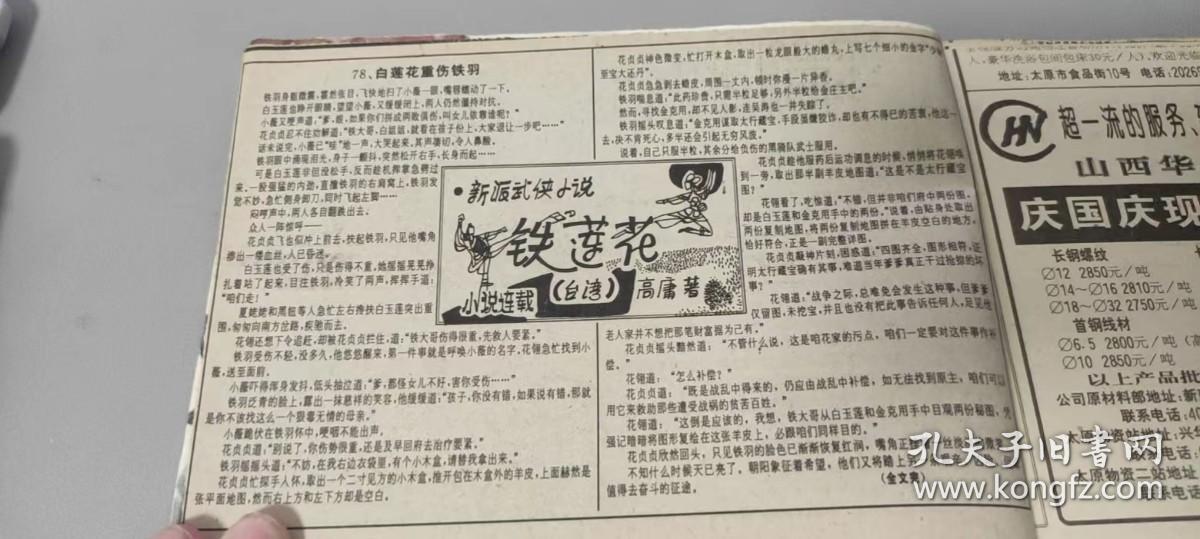 78、白莲花重伤铁羽
铁羽身躯微震,霍然张目,飞快地扫了小薇一眼,嘴唇蠕动了一下。
白玉莲也睁开眼睛,望望小薇,又缓缓闭上,两人仍然僵持对抗。
小薇又哽声道:“爹,娘,如果你们拼成两败俱伤,叫女儿依靠谁呢?”
花贞贞忍不住劝解道:“铁大哥,白姐姐,就看在孩子份上,大家退让一步吧……”
话未说完,小薇已“哇”地一声,大哭起来,其声凄切,令人鼻酸。
铁羽眼中涌现泪光,身子一颤抖,突然松开右手,长身而起……
可是白玉莲非但没松手,反而趁机挥掌急劈过
来。一股强猛的内劲,直撞铁羽的右肩窝上,铁羽发
觉不妙,急忙侧身卸刀,同时飞起左脚……
闷哼声中,两人各自翻跌出去。
众人一阵惊呼——
花贞贞飞也似冲上前去,扶起铁羽,只见他嘴角
挤出一缕血丝,人已昏迷。
白玉莲也受了伤,只是伤得不重,她摇摇晃晃挣
扎着站了起来,目注铁羽,冷笑了两声,挥挥手道:
“咱们走!”
夏姥姥和黑妞等人急忙左右搀扶白玉莲突出重
围,匆匆向南方岔路,疾驰而去。
花翎还想下令追赶,却被花贞贞拦住,道:“铁大哥伤得很重,先救人要紧。”
铁羽受伤不轻,没多久,他悠悠醒来,第一件事就是呼唤小薇的名字,花翎急忙找到小
薇,送至面前。
小薇吓得浑身发抖,低头抽泣道:“爹,都怪女儿不好,害你受伤……”
铁羽泛青的脸上,露出一抹慈祥的笑容,他缓缓道:“孩子,你没有错,如果说有错,那就
是你不该找这么一个狠毒无情的母亲。”
小薇跪伏在铁羽怀中,哽咽不能出声。
花贞贞道:“别说了,你伤势很重,还是及早回府去治疗要紧。”
铁羽摇摇头道:“不妨,在我右边衣袋里,有个小木盒,请替我拿出来。”
花贞贞忙探手入怀,取出一个二寸见方的小木盒,推开包在木盒外的羊皮,上面赫然是
张平面地图,然而右上方和左下方却是空白。
·新派武侠小说
铁莲花
小说连载
(台湾)
高庸著
花贞贞神色微变,忙打开木盒,取出一粒龙眼般大的蜡丸,上写七个细小的金字“少林
至宝大还丹”。
花贞贞急急剥去蜡皮,周围一丈内,顿时弥漫一片异香。
铁羽喘息道:“此药珍贵,只需半粒足够,另外半粒给金庄主吧。”
然而,寻找金克用,却不见人影,连吴涛也一并失踪了。
铁羽摇头叹息道:“金克用谋取太行藏宝,手段虽嫌狡诈,却也有不得已的苦衷,他这一
去,决不肯死心,多半还会引起无穷风波。”
说着,自己只服半粒,其余分给负伤的黑骑队武士服用。
花贞贞趁他服药后运功调息的时候,悄悄将花翎唤
到一旁,取出那半副羊皮地图道:“这是不是太行藏宝
图?”
花翎看了,吃惊道:“不错,但并非咱们府中两份图,
却是白玉莲和金克用手中的两份。”说着,由贴身处取出
两份复制图,将两份复制地图拼在羊皮空白的地方,
恰好符合,正是一副完整详图。
花贞贞凝神片刻,困惑道:“四图齐全,图形相符,证
明太行藏宝确有其事,难道当年爹爹真正干过抢掠的坏
事?”
花翎道:“战争之际,总难免会发生这种事,但爹爹
仅留图,未挖宝,并且也没有把此事告诉任何人,足见他
老人家并不想把那笔财富据为己有。”
花贞贞摇头黯然道:“不管什么说,这是咱花家的污点,咱们一定要对这件事作补
偿。”
花翎道:“怎么补偿?”
花贞贞道:“既是战乱中得来的,仍应由战乱中补偿,如无法找到原主,咱们可以
用它来救助那些遭受战祸的贫苦百姓。”
花翎道:“这倒是应该的,我想,铁大哥从白玉莲和金克用手中目观两份秘图,凭
强记暗暗将图形复绘在这张羊皮上,必跟咱们同样目的。”
花贞贞欣然回头,只见铁羽的脸色已渐渐恢复红润,嘴角正
不知什么时候天已亮了。朝阳象征着希望,他们又将踏上
值得去奋斗的征途。
(金文
人,豪华洗浴包间包床30元/人),欢迎光临
地址:太原市食品街10号 电话:2026
HN
超一流的服务、
山西华
庆国庆现
长钢螺纹
∅12 2850元/吨
∅14~∅16 2810元/吨
∅18~∅32 2750元/吨
首钢线材
∅6.5 2800元/吨(高
∅10 2850元/吨
以上产品批
公司原材料部地址:新
联系电话:4
太原物资站地址:兴华
太原物资二站地址
联系电话
孔夫子旧书网
www.kongfz.com